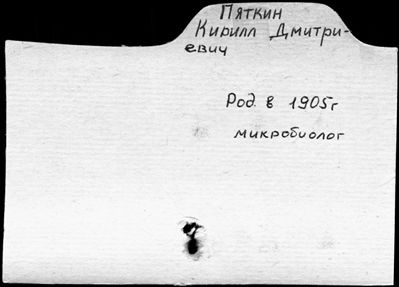 Пяткин
Кирилл Дмитри-
евич
Род. в 1905г
микробиолог